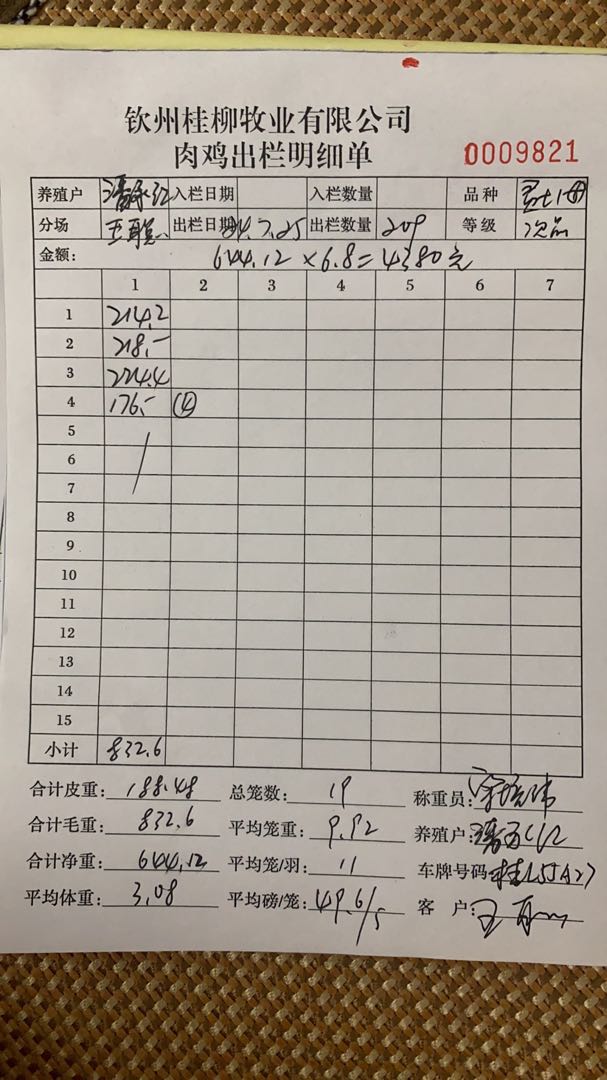 钦州桂柳牧业有限公司
肉鸡出栏明细单
0009821
养殖户 入栏日期 入栏数量 品种
分场 出栏日期 24.7.25 出栏数量 209 等级 次品
金额: 644.12×6.8=4380元
1 2 3 4 5 6 7
1 214.2
2 218.-
3 224.4
4 176.- ④
5
6
7
8
9
10
11
12
13
14
15
小计 832.6
合计皮重: 188.48 总笼数: 19 称重员:
合计毛重: 832.6 平均笼重: 9.92 养殖户:
合计净重: 644.12 平均笼/羽: 11 车牌号码:
平均体重: 3.08 平均磅/笼: 49.6/5 客户: